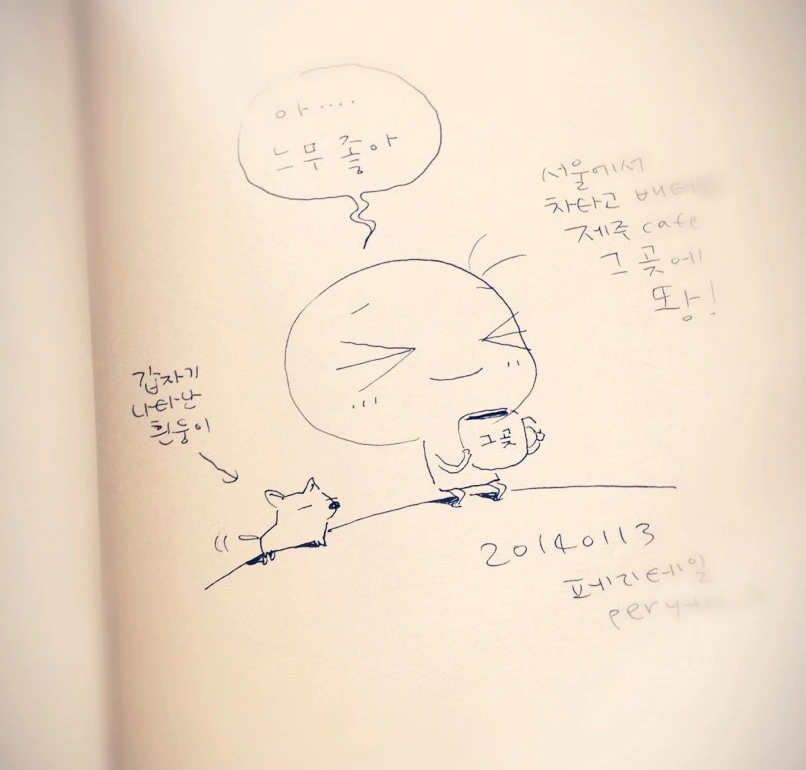 아....
느무 좋아
서울에서
차타고 배타
제주 cafe
그 곳에
또앙!
갑자기
나타난
흰둥이
그 곳
20140113
페리테일